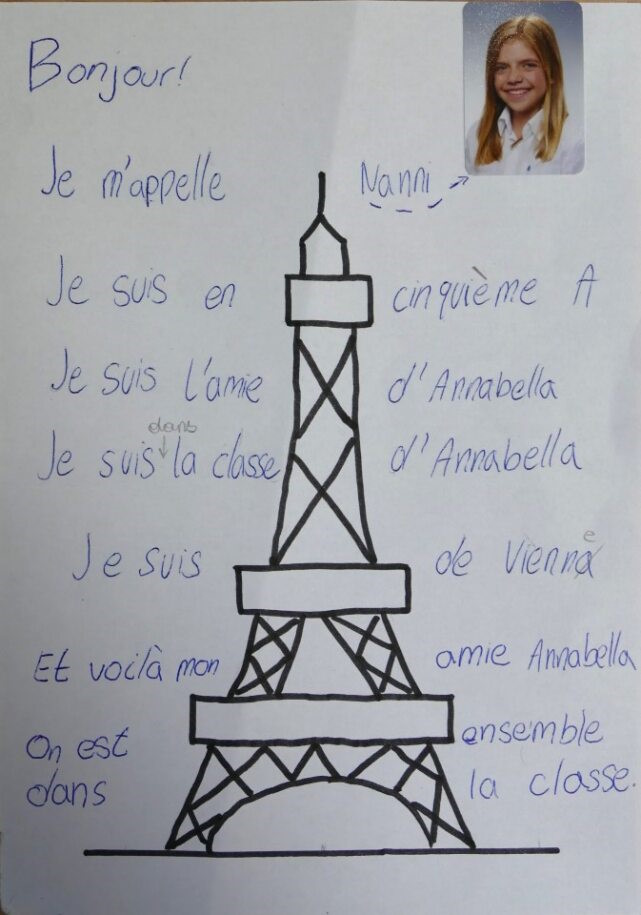 Bonjour!
Je m'appelle Nanni
Je suis en cinquième A
Je suis l'amie d'Annabella
dans
Je suis la classe d'Annabella
e
Je suis de Vienna
Et voilà mon amie Annabella
On est ensemble
dans la classe.